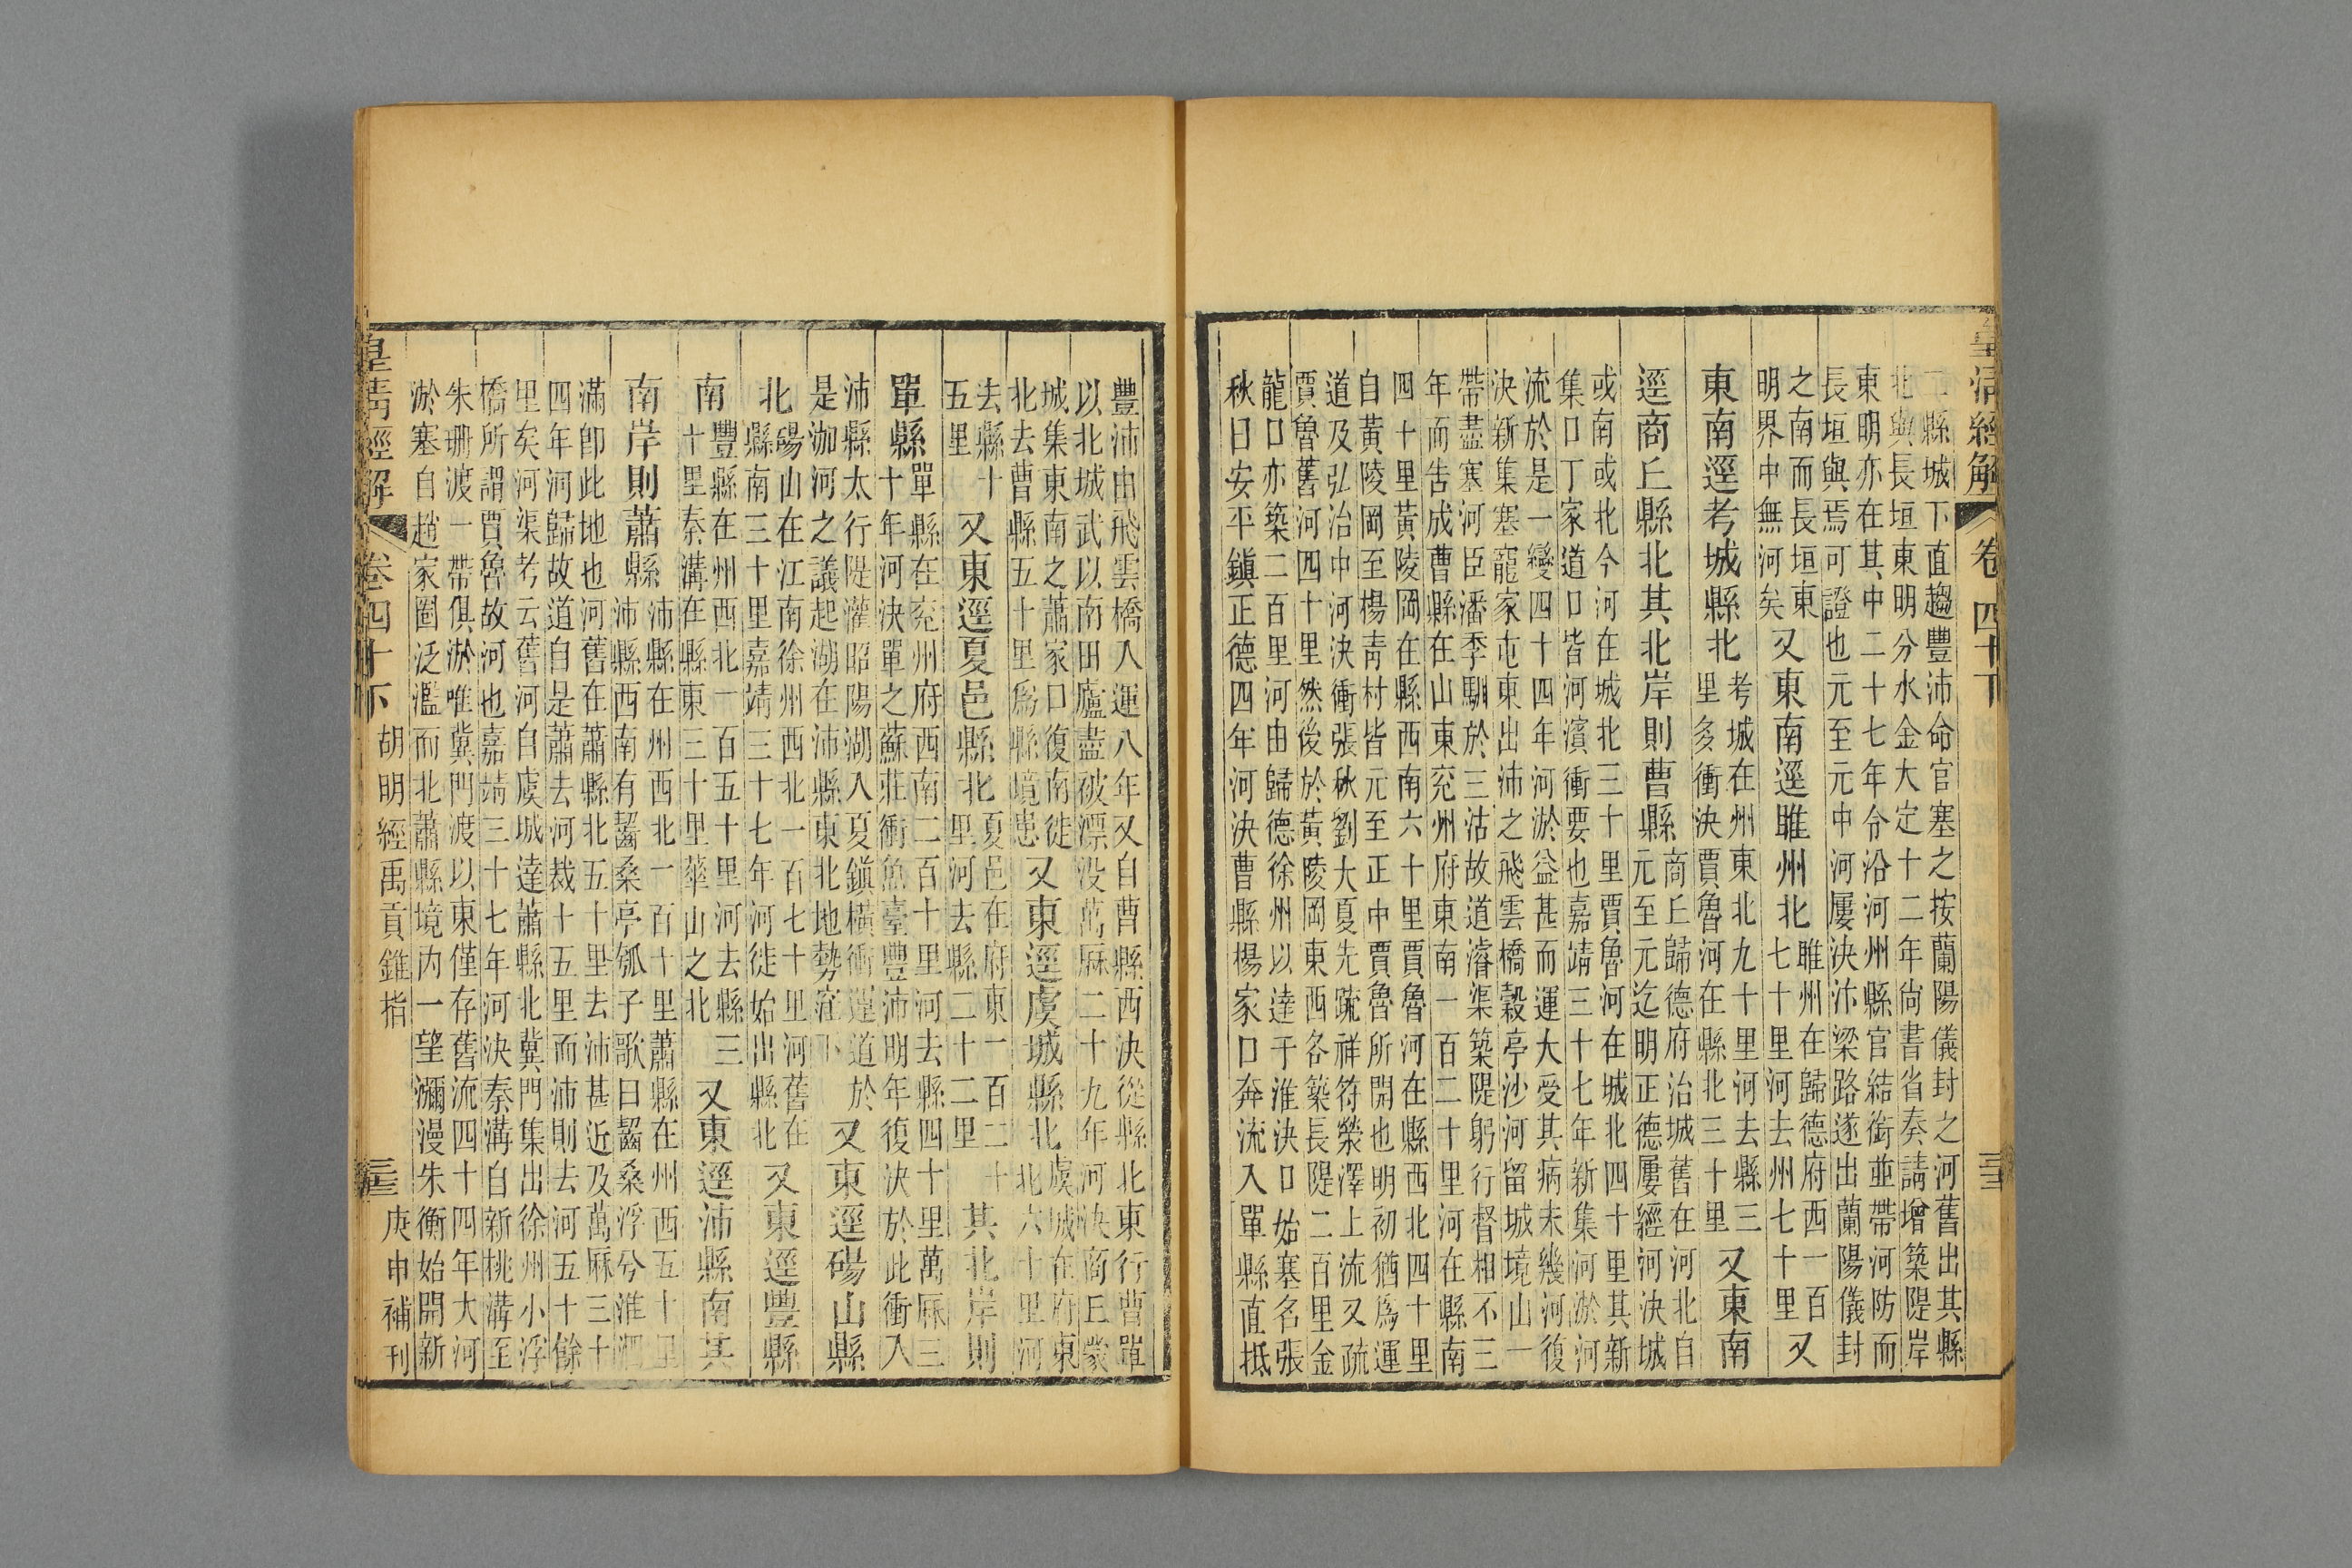 皇清經解
卷四十下
二縣城下直趨豐沛命官塞之按蘭陽儀封之河舊出其縣
北與長垣東明分水金大定十二年尚書省奏請增築隄岸
東明亦在其中二十七年令沿河州縣官結銜並帶河防而
長垣與焉可證也元至元中河屢決汴梁路遂出蘭陽儀封
之南而長垣東
明界中無河矣
又東南逕睢州北
睢州在歸德府西一百
七十里河去州七十里
又
東南逕考城縣北
考城在州東北九十里河去縣三
里多衝決賈魯河在縣北三十里
又東南
逕商丘縣北其北岸則曹縣
商丘歸德府治城舊在河北自
元至元迄明正德屢經河決城
或南或北今河在城北三十里賈魯河在城北四十里其新
集口丁家道口皆河濱衝要也嘉靖三十七年新集河淤河
流於是一變四十四年河淤益甚而運大受其病未幾河復
決新集塞寵家屯東出沛之飛雲橋穀亭沙河留城境山一
帶盡塞河臣潘季馴於三沽故道濬渠築隄躬行督相不三
年而告成曹縣在山東兗州府東南一百二十里河在縣南
四十里黃陵岡在縣西南六十里賈魯河在縣西北四十里
自黃陵岡至楊青村皆元至正中賈魯所開也明初猶爲運
道及弘治中河決衝張秋劉大夏先疏祥符滎澤上流又疏
賈魯舊河四十里然後於黃陵岡東西各築長隄二百里金
龍口亦築二百里河由歸德徐州以達于淮決口始塞名張
秋曰安平鎮正德四年河決曹縣楊家口奔流入單縣直抵
豐沛由飛雲橋入運八年又自曹縣西決從縣北東行曹單
以北城武以南田廬盡被漂没萬厤二十九年河決商丘蒙
城集東南之蕭家口復南徙
北去曹縣五十里爲縣境患
又東逕虞城縣北
虞城在府東
北六十里河
去縣十
五里
又東逕夏邑縣北
夏邑在府東一百二十
里河去縣二十二里
其北岸則
單縣
單縣在兗州府西南二百十里河去縣四十里萬厤三
十年河決單之蘇莊衝魚臺豐沛明年復決於此衝入
沛縣太行隄灌昭陽湖入夏鎮橫衝運道於
是泇河之議起湖在沛縣東北地勢窪下
又東逕碭山縣
北
碭山在江南徐州西北一百七十里河舊在
縣南三十里嘉靖三十七年河徙始出縣北
又東逕豐縣
南
豐縣在州西北一百五十里河去縣三
十里秦溝在縣東三十里華山之北
又東逕沛縣南其
南岸則蕭縣
沛縣在州西北一百十里蕭縣在州西五十里
沛縣西南有齧桑亭瓠子歌曰齧桑浮兮淮泗
滿卽此地也河舊在蕭縣北五十里去沛甚近及萬厤三十
四年河歸故道自是蕭去河裁十五里而沛則去河五十餘
里矣河渠考云舊河自虞城達蕭縣北冀門集出徐州小浮
橋所謂賈魯故河也嘉靖三十七年河決秦溝自新桃溝至
朱珊渡一帶俱淤唯冀門渡以東僅存舊流四十四年大河
淤塞自趙家圈泛濫而北蕭縣境內一望瀰漫朱衡始開新
皇清經解
卷四十下
胡明經禹貢錐指
庚申補刊